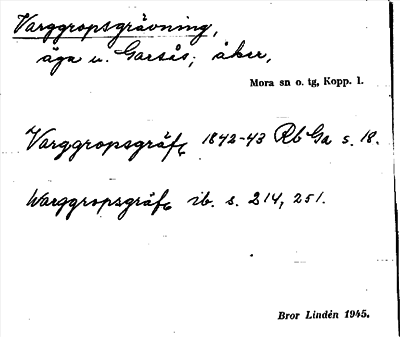 Varggropsgrävning,
äga u. Garsås; åker,
Mora sn o. tg, Kopp. l.
Varggropsgräf 1842-43 Rb Ga s. 18.
Warggropsgräf ib. s. 214, 251.
Bror Lindén 1945.